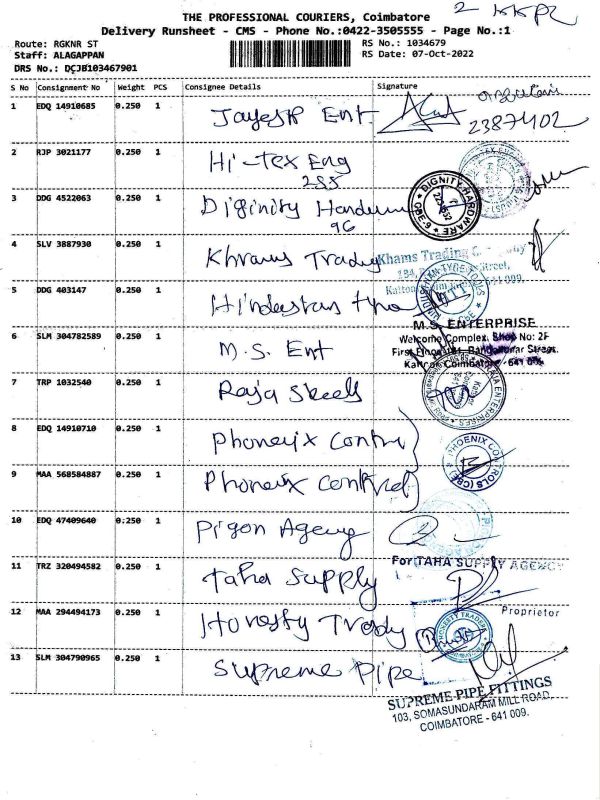 THE PROFESSIONAL COURIERS, Coimbatore
Delivery Runsheet - CMS - Phone No.:0422-3505555 - Page No.:1
Route: RGKNR ST
RS No.: 1034679
Staff: ALAGAPPAN
RS Date: 07-Oct-2022
DRS No.: DCJB103467901
S No Consignment No Weight PCS Consignee Details Signature
1 EDQ 14910685 0.250 1 Jayesh Ent
23874402
2 RJP 3021177 0.250 1 Hi-Tex Eng
255
3 DDG 4522063 0.250 1 Diginity
96
DIGNITY HARDWARE
CBE-9
4 SLV 3887930 0.250 1 Khams Trading
Khams Trading
5 DDG 403147 0.250 1 Hindustan
6 SLM 304782589 0.250 1 M.S. Ent
M.S. ENTERPRISE
Welcome Complex, Shop No: 2F
First Floor
Street,
Coimbatore - 641 0
7 TRP 1032540 0.250 1 Raja Steels
8 EDQ 14910710 0.250 1 Phoneix Contro
PHOENIX CONTROLS (CBE)
9 MAA 568584887 0.250 1 Phoneix Control
10 EDQ 47409640 0.250 1 Pigon Agency
11 TRZ 320494582 0.250 1 Taha Supply
For TAHA SUPPLY AGENCY
Proprietor
12 MAA 294494173 0.250 1 Honesty Trady
HONESTY TRADERS
13 SLM 304790965 0.250 1 Supreme Pipe
SUPREME PIPE FITTINGS
103, SOMASUNDARAM MILL ROAD,
COIMBATORE - 641 009.